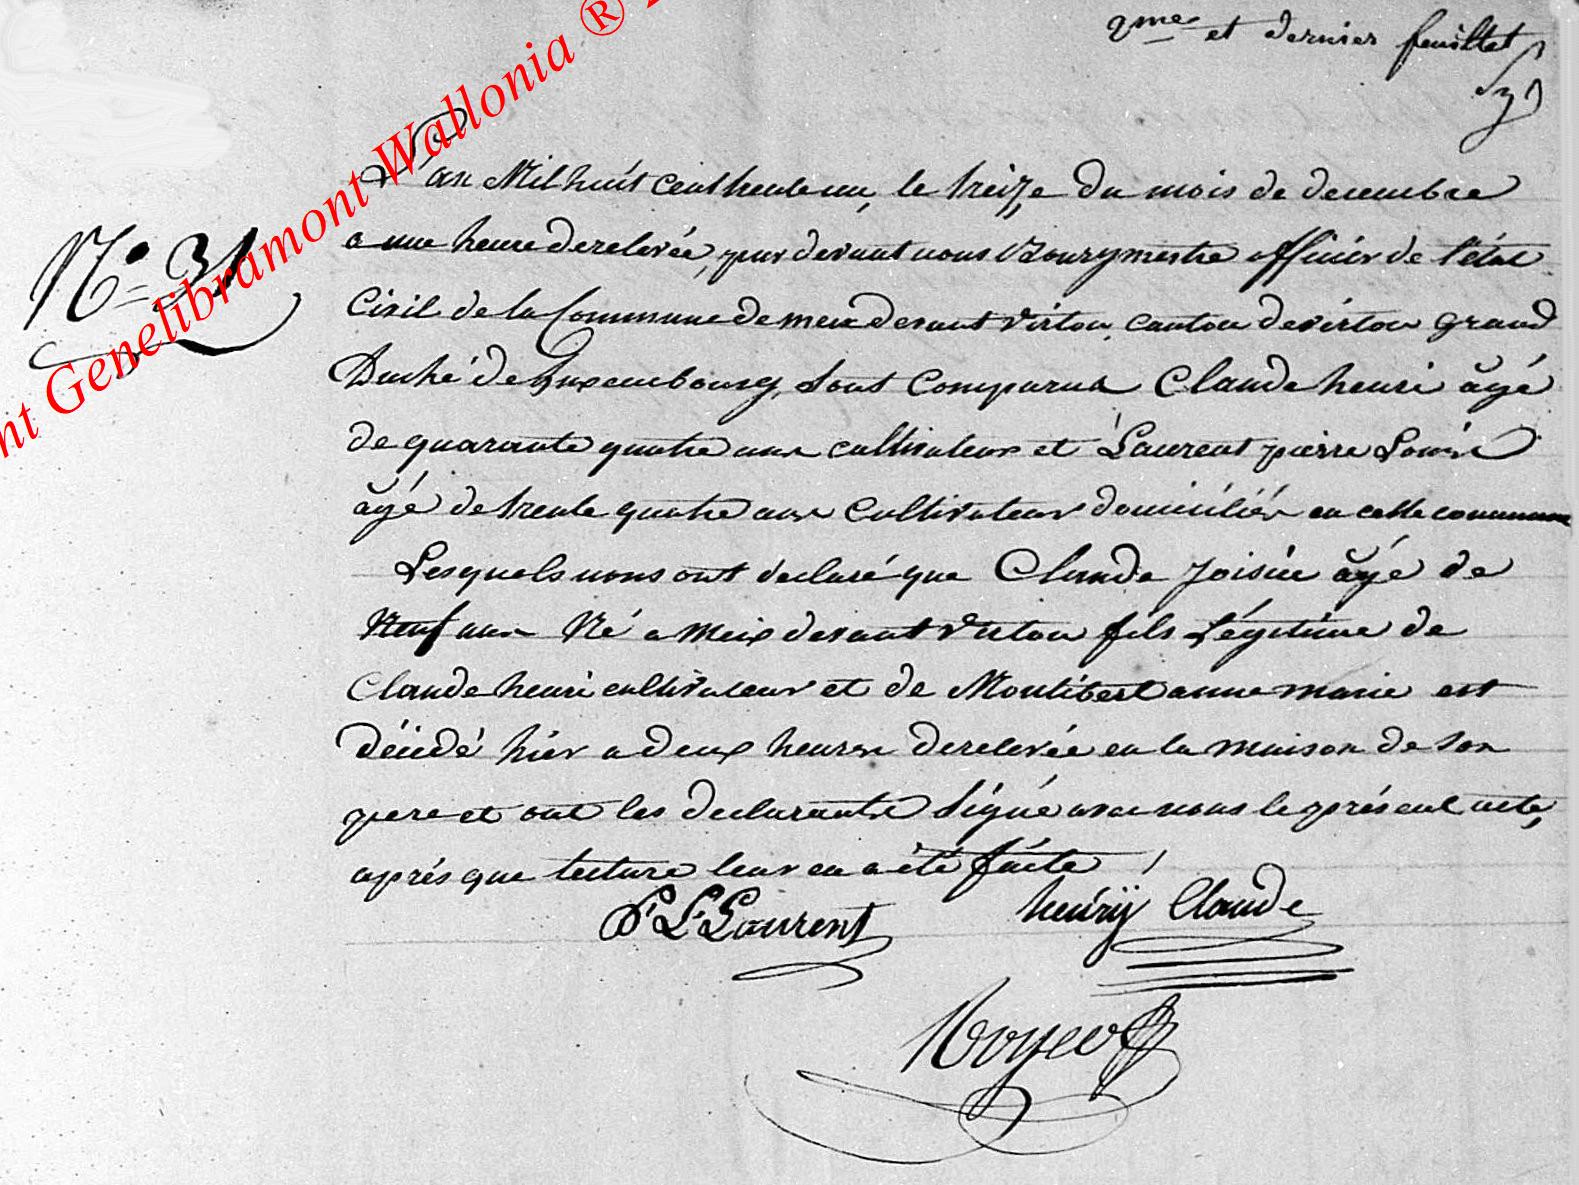 9me et dernier feuillet
nt Genelibramont Wallonia ®
N° 31
L'an Mil huit cent trente un, le treize du mois de decembre
a une heure de relevée, par devant nous Bourgmestre officier de l'état
Civil de la Commune de meix devant virton, canton de virton grand
Duché de Luxembourg, sont comparus Claude henri âgé
de quarante quatre ans cultivateur et Laurent pierre Louis
âgé de trente quatre ans cultivateur domiciliés en cette commune
Lesquels nous ont declaré que Claude âgé de
Neuf ans Né a meix devant Virton fils Légitime de
Claude henri cultivateur et de Montibert anne marie est
décédé hier a deux heures de relevée en la maison de son
pere et ont les declarants signé avec nous le présent acte,
après que lecture leur en a été faite
P. L. Laurent henrÿ Claude